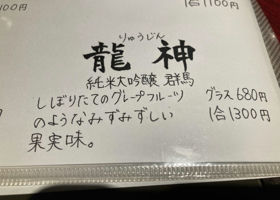 1100円
1合1100円
りゅうじん
龍神
純米大吟醸 群馬
しぼりたてのグレープフルーツ
のようなみずみずしい
果実味。
グラス680円
1合1300円